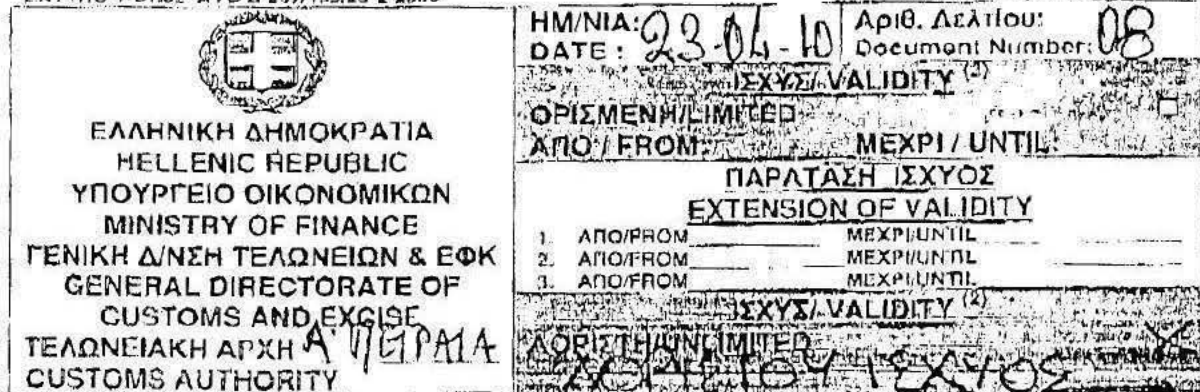 ΕΛΛΗΝΙΚΗ ΔΗΜΟΚΡΑΤΙΑ
HELLENIC REPUBLIC
ΥΠΟΥΡΓΕΙΟ ΟΙΚΟΝΟΜΙΚΩΝ
MINISTRY OF FINANCE
ΓΕΝΙΚΗ Δ/ΝΣΗ ΤΕΛΩΝΕΙΩΝ & ΕΦΚ
GENERAL DIRECTORATE OF
CUSTOMS AND EXCISE
ΤΕΛΩΝΕΙΑΚΗ ΑΡΧΗ Α' ΠΕΙΡΑΙΑ
CUSTOMS AUTHORITY
ΗΜ/ΝΙΑ:
DATE : 23-04-10
Αριθ. Δελτίου:
Document Number: 08
ΙΣΧΥΣ/ VALIDITY (2)
ΟΡΙΣΜΕΝΗ/LIMITED
ΑΠΟ / FROM: ΜΕΧΡΙ / UNTIL:
ΠΑΡΑΤΑΣΗ ΙΣΧΥΟΣ
EXTENSION OF VALIDITY
1. ΑΠΟ/FROM ΜΕΧΡΙ/UNTIL
2. ΑΠΟ/FROM ΜΕΧΡΙ/UNTIL
3. ΑΠΟ/FROM ΜΕΧΡΙ/UNTIL
ΙΣΧΥΣ/ VALIDITY (2)
ΑΟΡΙΣΤΗ/UNLIMITED
ΑΟΡΙΣΤΟΥ ΙΣΧΥΟΣ